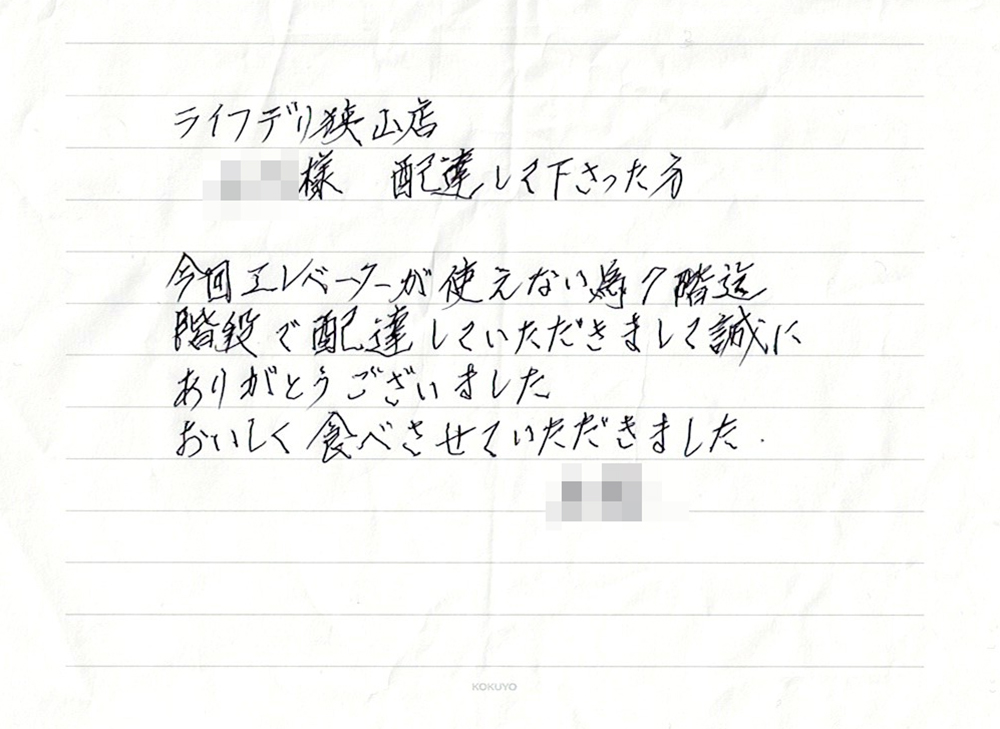 ライフデリ狭山店
様 配達して下さった方
今回エレベーターが使えない為7階迄
階段で配達していただきまして誠に
ありがとうございました
おいしく食べさせていただきました.
KOKUYO